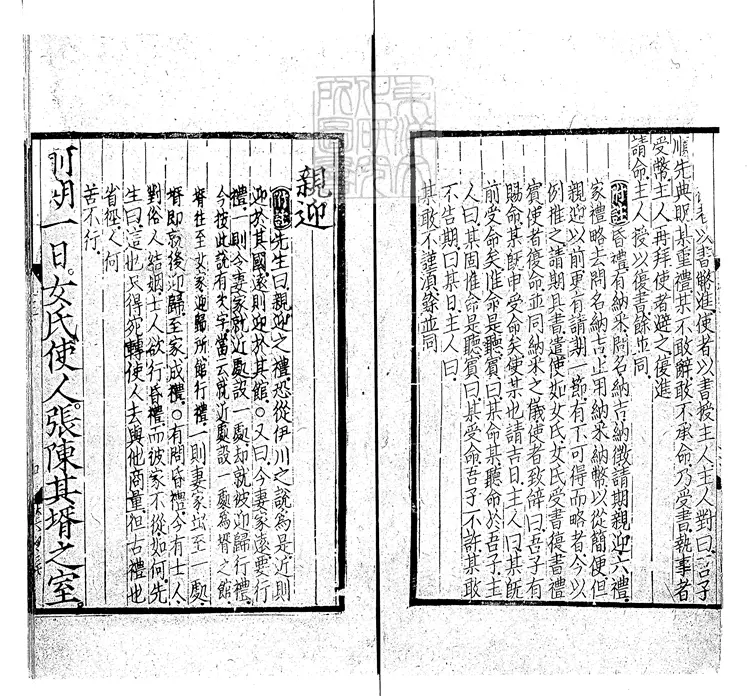 以書幣進使者以書授主人主人對曰吾子
順先典貺某重禮某不敢辭敢不承命乃受書執事者
受幣主人再拜使者避之復進
請命主人授以復書餘並同
附註昏禮有納采問名納吉納徵請期親迎六禮
家禮略去問名納吉止用納采納幣以從簡便但
親迎以前更有請期一節有不可得而略者今以
例推之請期具書遣使如女氏女氏受書復書禮
賓使者復命並同納采之儀使者致辭曰吾子有
賜命某旣申受命矣使某也請吉日主人曰某旣
前受命矣惟命是聽賓曰某命某聽命於吾子主
人曰某固惟命是聽賓曰某受命吾子不許某敢
不告期曰某日主人曰
某敢不謹須餘並同
親迎
附註先生曰親迎之禮恐從伊川之說爲是近則
迎於其國遠則迎於其館〇又曰今妻家遠要行
禮一則令妻家就近處設一處却就彼迎歸行禮
今按此說有欠字當云就近處設一處爲壻之館
壻往至女家迎歸所館行禮一則妻家出至一處
壻即就彼迎歸至家成禮〇有問昏禮今有士人
對俗人結姻士人欲行昏禮而彼家不從如何先
生曰這也只得宛轉使人去與他商量但古禮也
省徑人何
苦不行
前期一日女氏使人張陳其壻之室
東洋文
化研究
所圖書